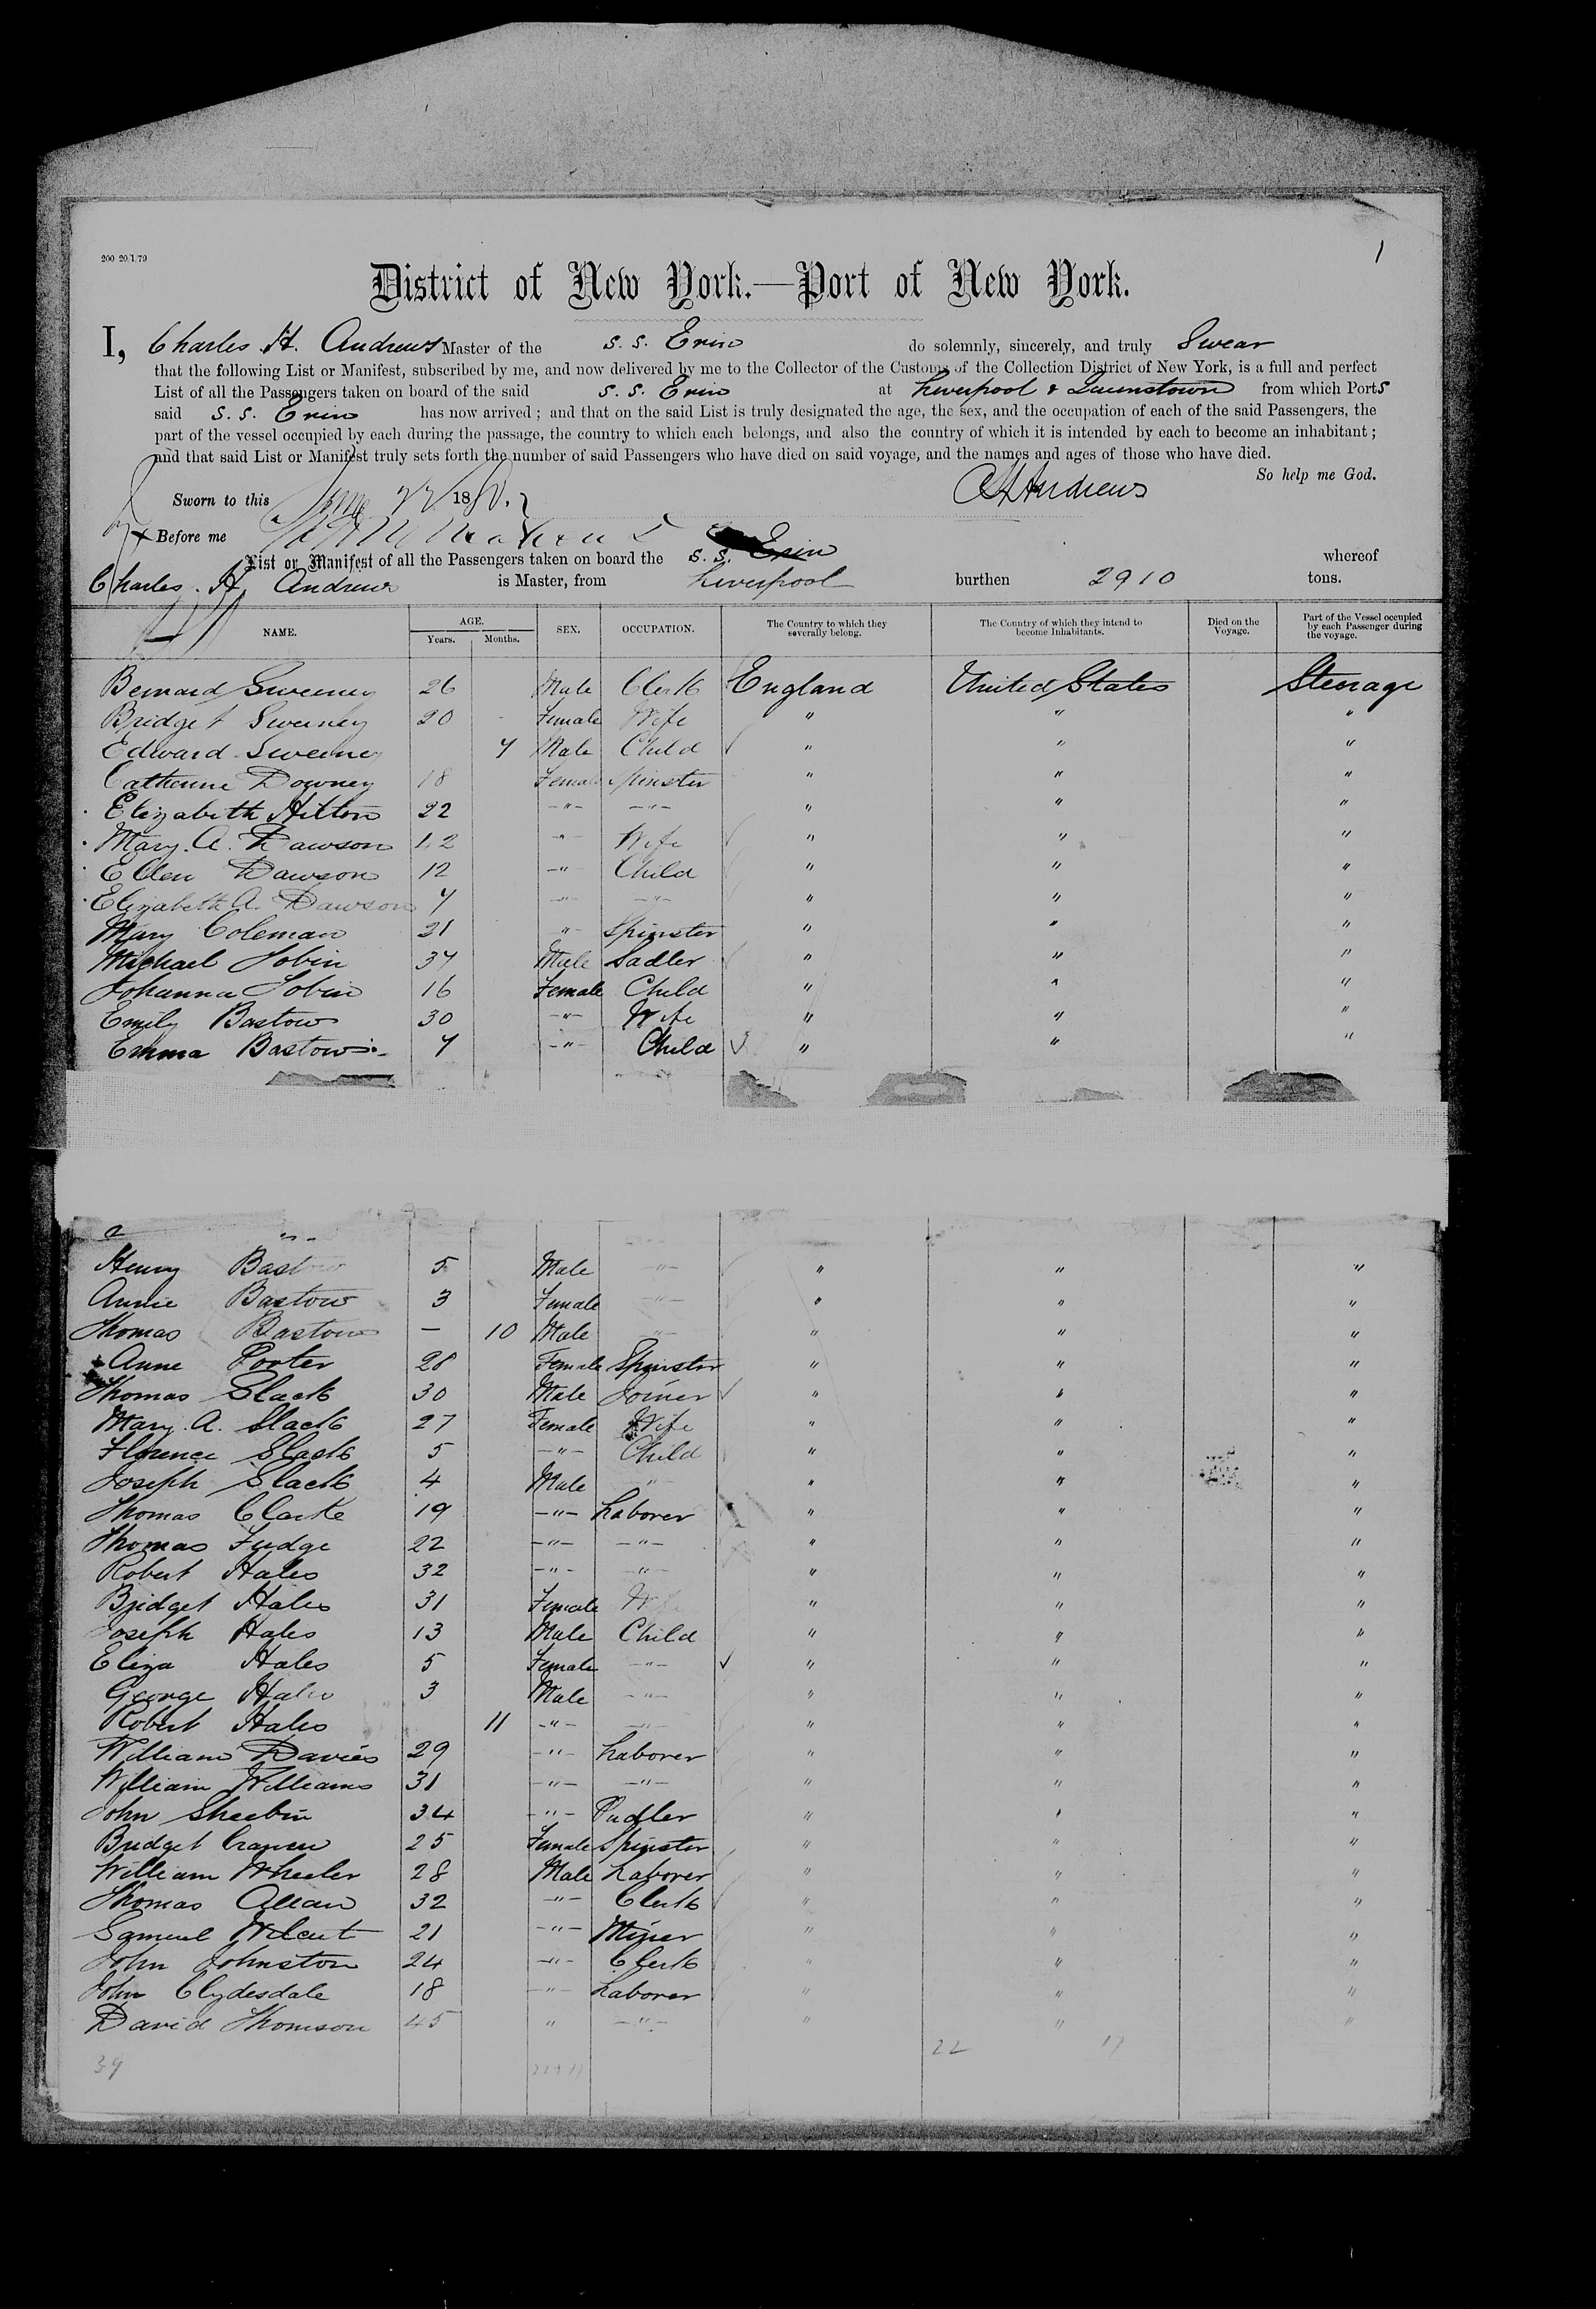 200 20/1/79
1
District of New York.—Port of New York.
I, Charles H. Andrews Master of the S. S. Erin do solemnly, sincerely, and truly Swear
that the following List or Manifest, subscribed by me, and now delivered by me to the Collector of the Customs of the Collection District of New York, is a full and perfect
List of all the Passengers taken on board of the said S. S. Erin at Liverpool & Queenstown from which Ports
said S. S. Erin has now arrived ; and that on the said List is truly designated the age, the sex, and the occupation of each of the said Passengers, the
part of the vessel occupied by each during the passage, the country to which each belongs, and also the country of which it is intended by each to become an inhabitant ;
and that said List or Manifest truly sets forth the number of said Passengers who have died on said voyage, and the names and ages of those who have died.
So help me God.
Sworn to this June 1880. CHAndrews
Before me
List or Manifest of all the Passengers taken on board the S. S. Erin whereof
Charles H. Andrews is Master, from Liverpool burthen 2910 tons.
NAME. AGE. Years. Months. SEX. OCCUPATION. The Country to which they severally belong. The Country of which they intend to become Inhabitants. Died on the Voyage. Part of the Vessel occupied by each Passenger during the voyage.
Bernard Sweeney 26 Male Clerk England United States Steerage
Bridget Sweeney 20 - Female Wife " " "
Edward Sweeney 7 Male Child " " "
Catherine Downey 18 Female Spinster " " "
Elizabeth Hilton 22 -"- -"- " " "
Mary. A. Dawson 42 -"- Wife " " "
Ellen Dawson 12 -"- Child " " "
Elizabeth A. Dawson 7 -"- -"- " " "
Mary Coleman 21 -"- Spinster " " "
Michael Tobin 37 Male Sadler " " "
Johanna Tobin 16 Female Child " " "
Emily Bastow 30 -"- Wife " " "
Emma Bastow 7 -"- Child " " "
Henry Bastow 5 Male -"- " " "
Annie Bastow 3 Female -"- " " "
Thomas Bastow — 10 Male -"- " " "
Anne Porter 28 Female Spinster " " "
Thomas Slack 30 Male Joiner " " "
Mary. A. Slack 27 Female Wife " " "
Florence Slack 5 -"- Child " " "
Joseph Slack 4 Male -"- " " "
Thomas Clarke 19 -"- Laborer " " "
Thomas Judge 22 -"- -"- " " "
Robert Hales 32 -"- -"- " " "
Bridget Hales 31 Female Wife " " "
Joseph Hales 13 Male Child " " "
Eliza Hales 5 Female -"- " " "
George Hales 3 Male -"- " " "
Robert Hales 11 -"- -"- " " "
William Davies 29 -"- Laborer " " "
William Williams 31 -"- -"- " " "
John Sheebin 34 -"- Pudler " " "
Bridget Craven 25 Female Spinster " " "
William Wheeler 28 Male Laborer " " "
Thomas Allan 32 -"- Clerk " " "
Samuel 21 -"- Miner " " "
John Johnston 24 -"- Clerk " " "
John Clydesdale 18 -"- Laborer " " "
David Thomson 45 " -"- " " "
39 22 17